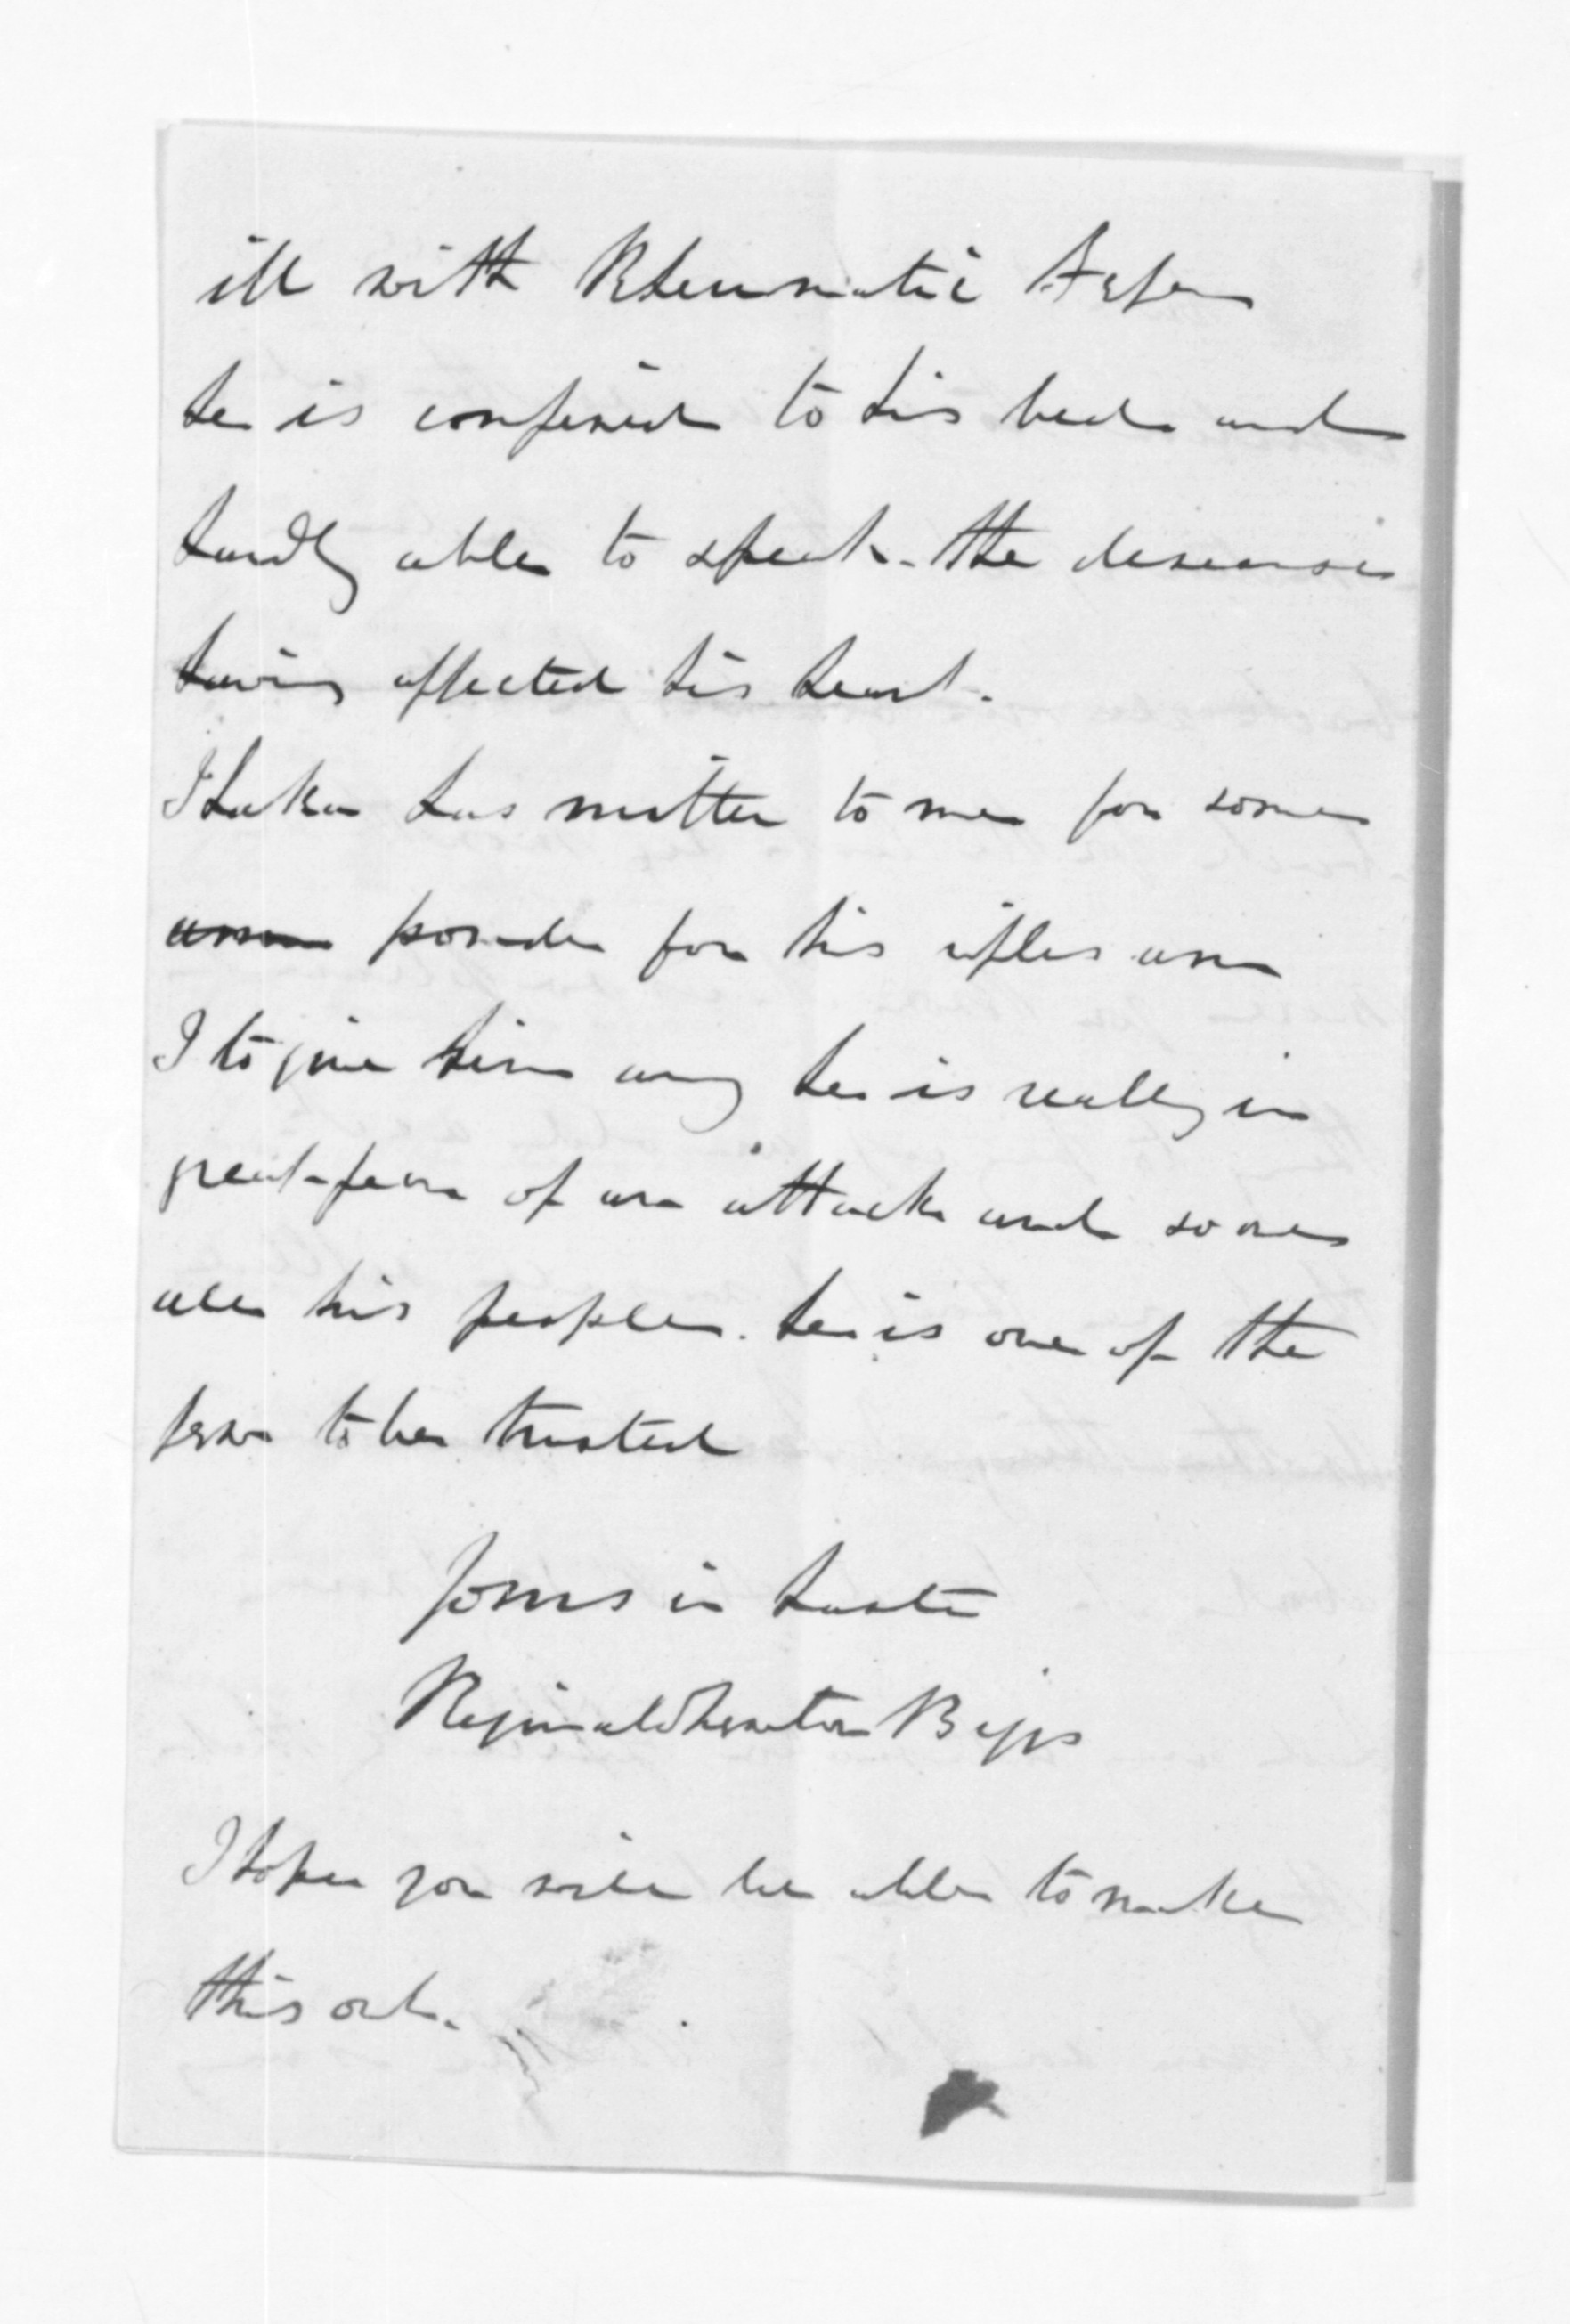 ill with Rheumatic Fever
he is confined to his bed and
hardly able to speak. the desease
having affected his heart.
Ihaka has written to me for some
powder for his rifles am
I to give him any he is really in
great fear of an attack and so are
all his people. he is one of the
few to be trusted
Yours in haste
Reginald Newton Biggs
I hope you will be able to make
this out.